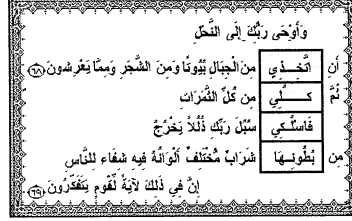 وَأَوْحَى رَبُّكَ إِلَى النَّحْلِ
أَنِ اتَّخِذِي مِنَ الْجِبَالِ بُيُوتًا وَمِنَ الشَّجَرِ وَمِمَّا يَعْرِشُونَ ﴿٦٨﴾
ثُمَّ كُـلِّي مِن كُلِّ الثَّمَرَاتِ
فَاسْلُكِي سُبُلَ رَبِّكِ ذُلُلًا يَخْرُجُ
مِن بُطُونِـهَا شَرَابٌ مُّخْتَلِفٌ أَلْوَانُهُ فِيهِ شِفَاء لِلنَّاسِ
إِنَّ فِي ذَلِكَ لَآيَةً لِّقَوْمٍ يَتَفَكَّرُونَ ﴿٦٩﴾